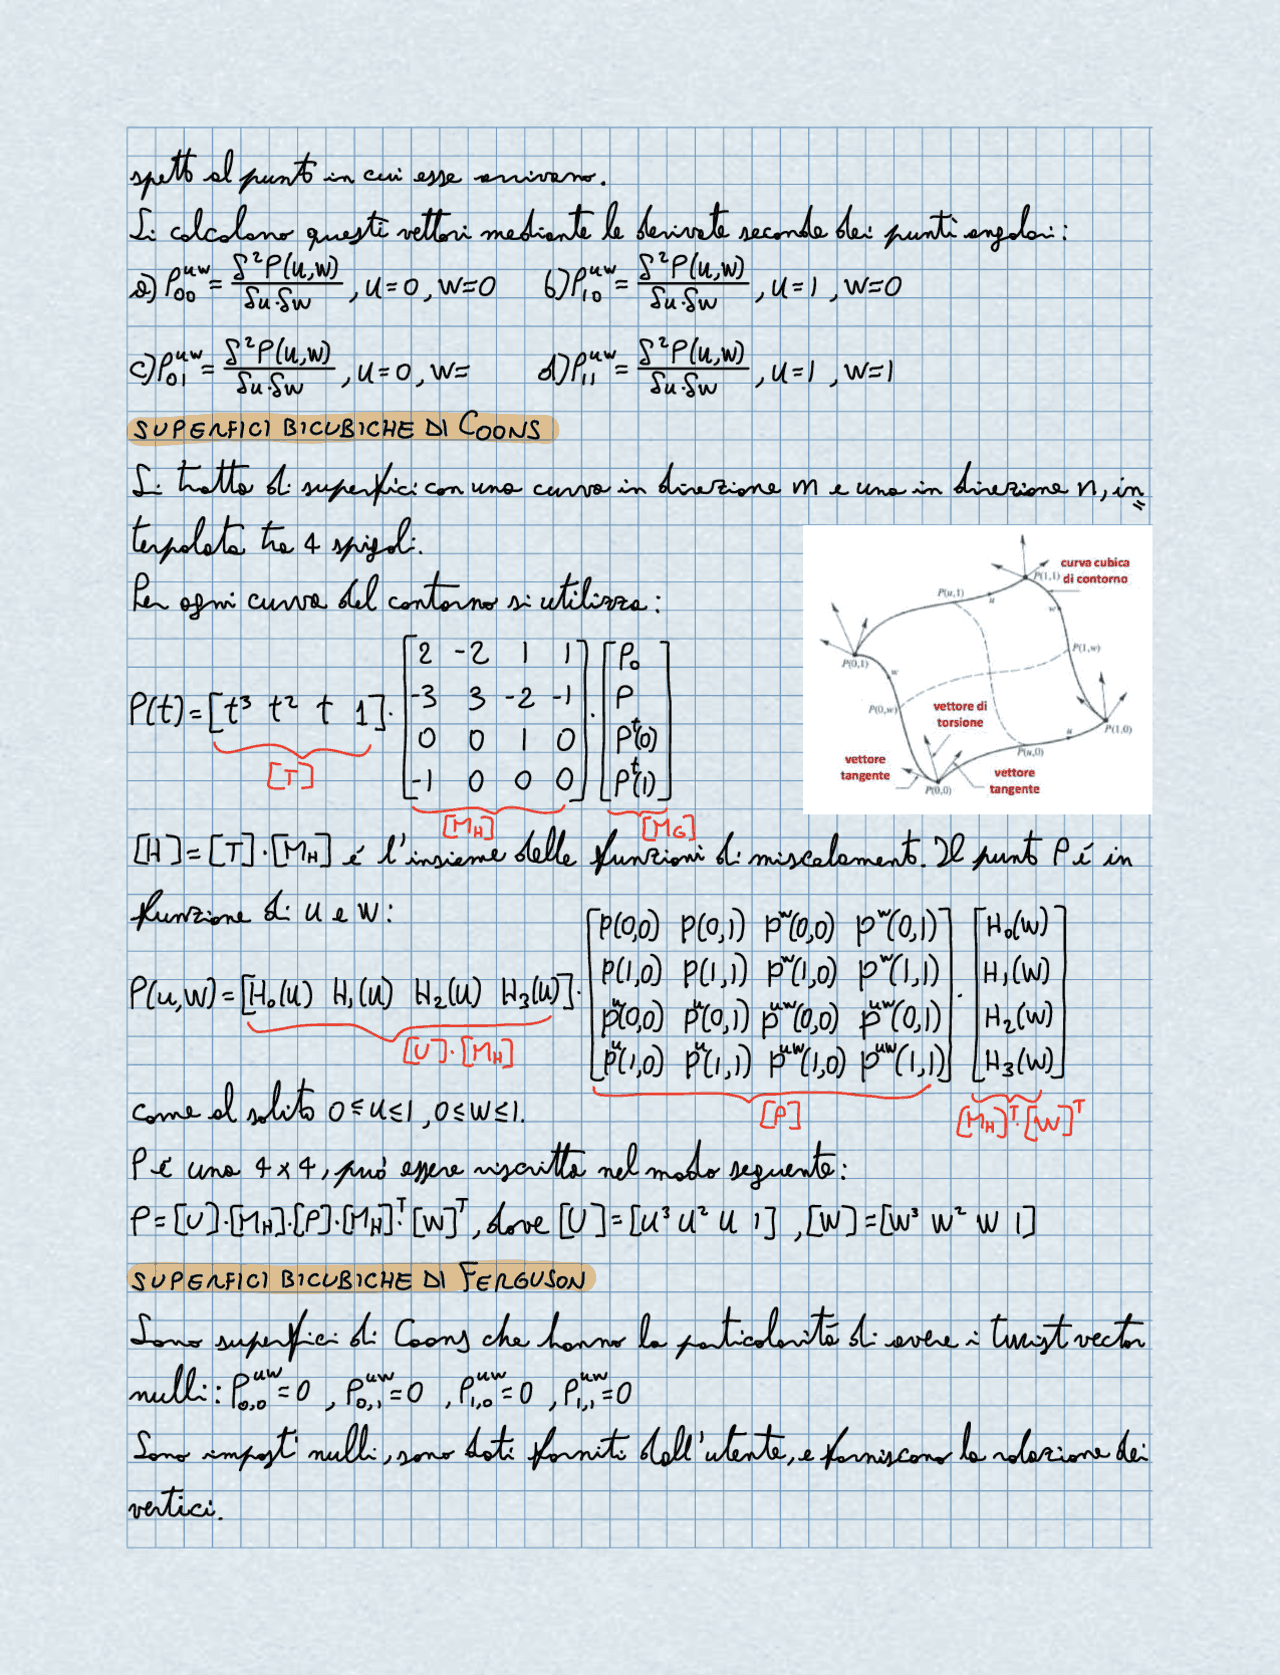 spetto al punto in cui esse arrivano.
Si calcolano questi vettori mediante le derivate seconde dei punti angolari:
a) P₀₀ᵘʷ = δ²P(u,w)/δu·δw , u=0 , w=0   b) P₁₀ᵘʷ = δ²P(u,w)/δu·δw , u=1 , w=0
c) P₀₁ᵘʷ = δ²P(u,w)/δu·δw , u=0 , w=   d) P₁₁ᵘʷ = δ²P(u,w)/δu·δw , u=1 , w=1
SUPERFICI BICUBICHE DI COONS
Si tratta di superfici con una curva in direzione m e una in direzione n, in=
terpolata tra 4 spigoli.
Per ogni curva del contorno si utilizza:
P(t)=[t³ t² t 1]·[2 -2 1 1; -3 3 -2 -1; 0 0 1 0; -1 0 0 0]·[P₀; P; Pᵗ(0); Pᵗ(1)]
[T]
[M_H]
[M_G]
curva cubica
di contorno
P(1,1)
P(u,1)
u
w
P(0,1)
w
P(1,w)
P(0,w)
vettore di
torsione
P(1,0)
u
P(u,0)
vettore
tangente
vettore
tangente
P(0,0)
[H]=[T]·[M_H] é l'insieme delle funzioni di miscelamento. Il punto P é in
funzione di u e w:
P(u,w)=[H₀(u) H₁(u) H₂(u) H₃(u)]·[p(0,0) p(0,1) pʷ(0,0) pʷ(0,1); p(1,0) p(1,1) pʷ(1,0) pʷ(1,1); pᵘ(0,0) pᵘ(0,1) pᵘʷ(0,0) pᵘʷ(0,1); pᵘ(1,0) pᵘ(1,1) pᵘʷ(1,0) pᵘʷ(1,1)]·[H₀(w); H₁(w); H₂(w); H₃(w)]
[U]·[M_H]
[P]
[M_H]ᵀ·[W]ᵀ
come al solito 0≤u≤1 , 0≤w≤1.
P é una 4×4, puó essere riscritta nel modo seguente:
P=[U]·[M_H]·[P]·[M_H]ᵀ·[W]ᵀ, dove [U]=[u³ u² u 1] , [W]=[w³ w² w 1]
SUPERFICI BICUBICHE DI FERGUSON
Sono superfici di Coons che hanno la particolaritá di avere i twist vector
nulli: P₀,₀ᵘʷ=0 , P₀,₁ᵘʷ=0 , P₁,₀ᵘʷ=0 , P₁,₁ᵘʷ=0
Sono imposti nulli, sono dati forniti dall'utente, e forniscono la rotazione dei
vertici.